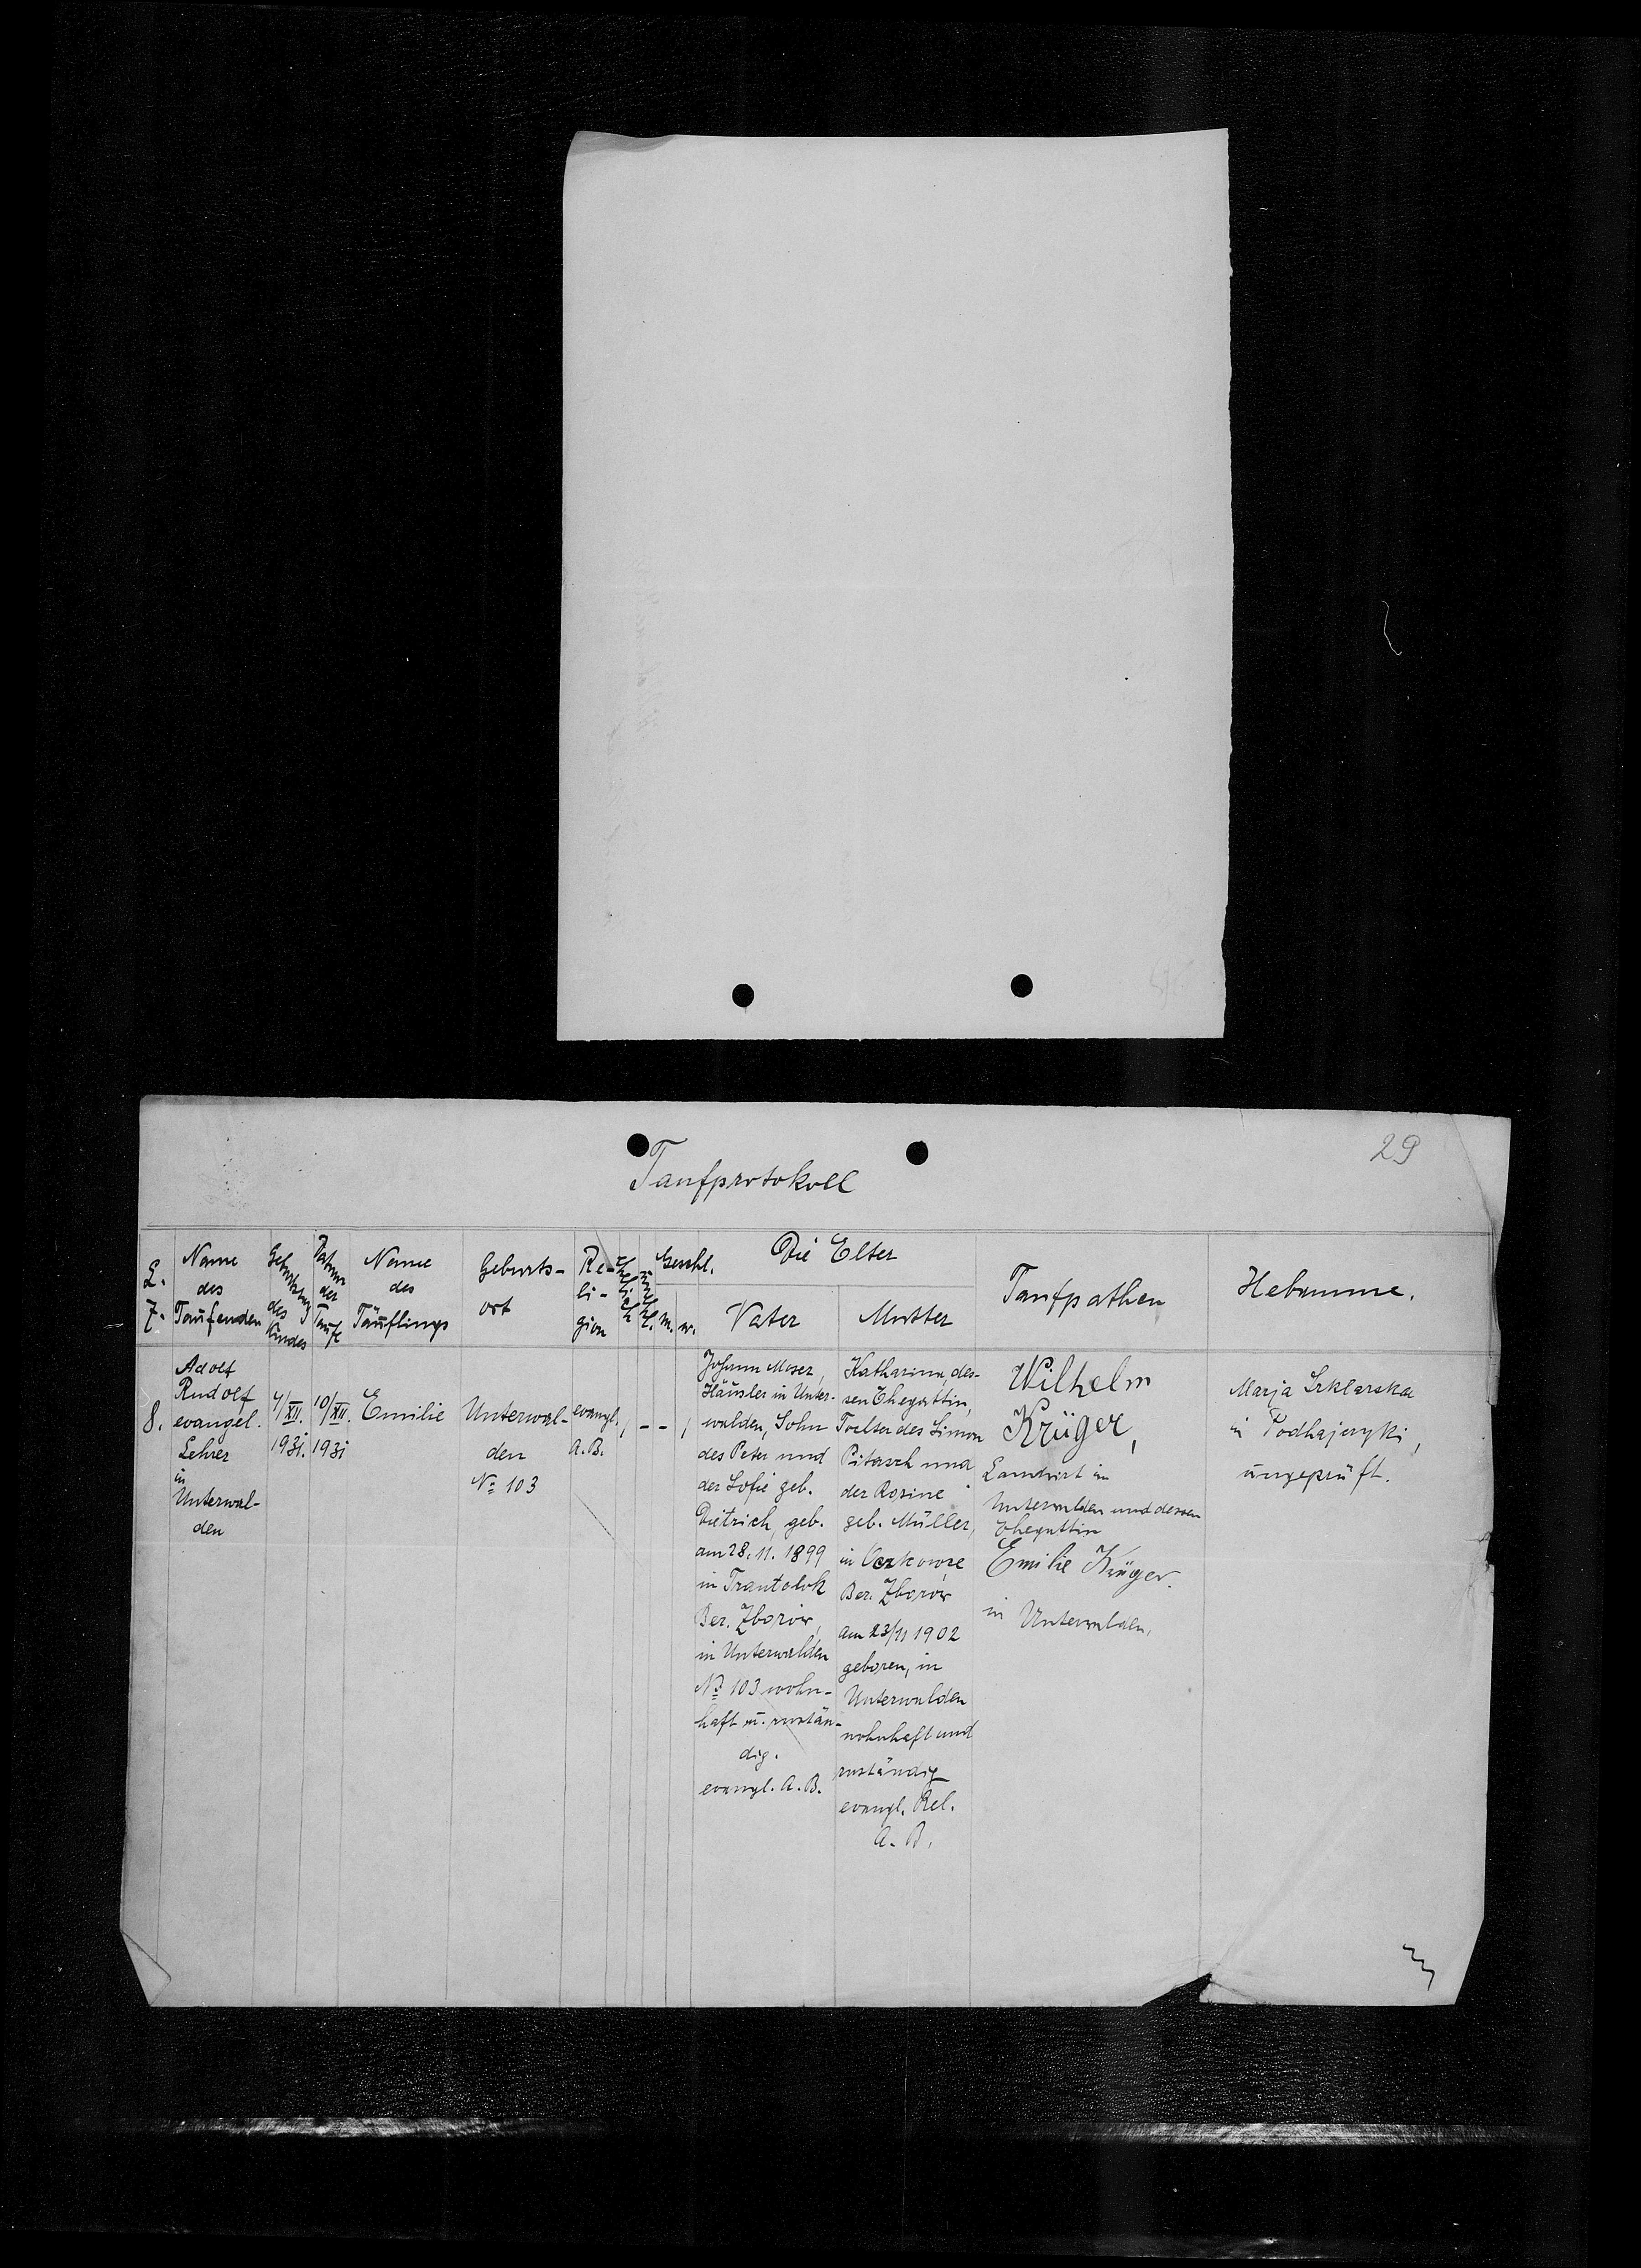 29
Taufprotokoll
L. Z.
Name des Taufenden
Geburtstag des Kindes
Datum der Taufe
Name des Täuflings
Geburts-
ort
Re-
li-
gion
Geschl.
m. w.
Die Elter
Vater
Mutter
Taufpathen
Hebamme.
8.
Adolf
Rudolf
evangel.
Lehrer
in
Unterwal-
den
4/XII.
1931.
10/XII.
1931
Emilie
Unterwal-
den
№ 103
evangl.
A.B.
/ - - /
Johann Moser,
Häusler in Unter-
walden, Sohn
des Peter und
der Sofie geb.
Dietrich, geb.
am 28.11.1899
in Trantolok
Bez. Zborów,
in Unterwalden
№ 103 wohn-
haft u. zustän-
dig.
evangl. A.B.
Katharina, des-
sen Ehegattin,
Tochter des Simon
Pitasch und
der Rosine
geb. Müller,
in
Bez. Zborów
am 23/11 1902
geboren, in
Unterwalden
wohnhaft und
zuständig
evangl. Rel.
A. B.
Wilhelm
Krüger,
Landwirt in
Unterwalden und dessen
Ehegattin
Emilie Krüger.
in Unterwalden.
Marja Szklarska
in Podhajczyki,
ungeprüft.